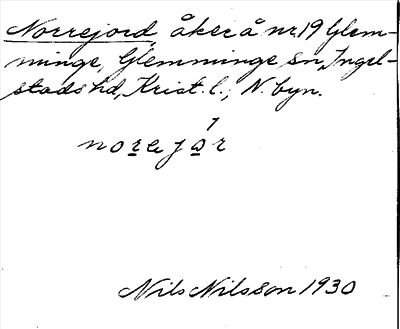 Norrejord, åker å nr 19 Glem-
minge, Glemminge sn, Ingel-
stads hd, Krist. l.; N. byn.
norejor
Nils Nilsson 1930